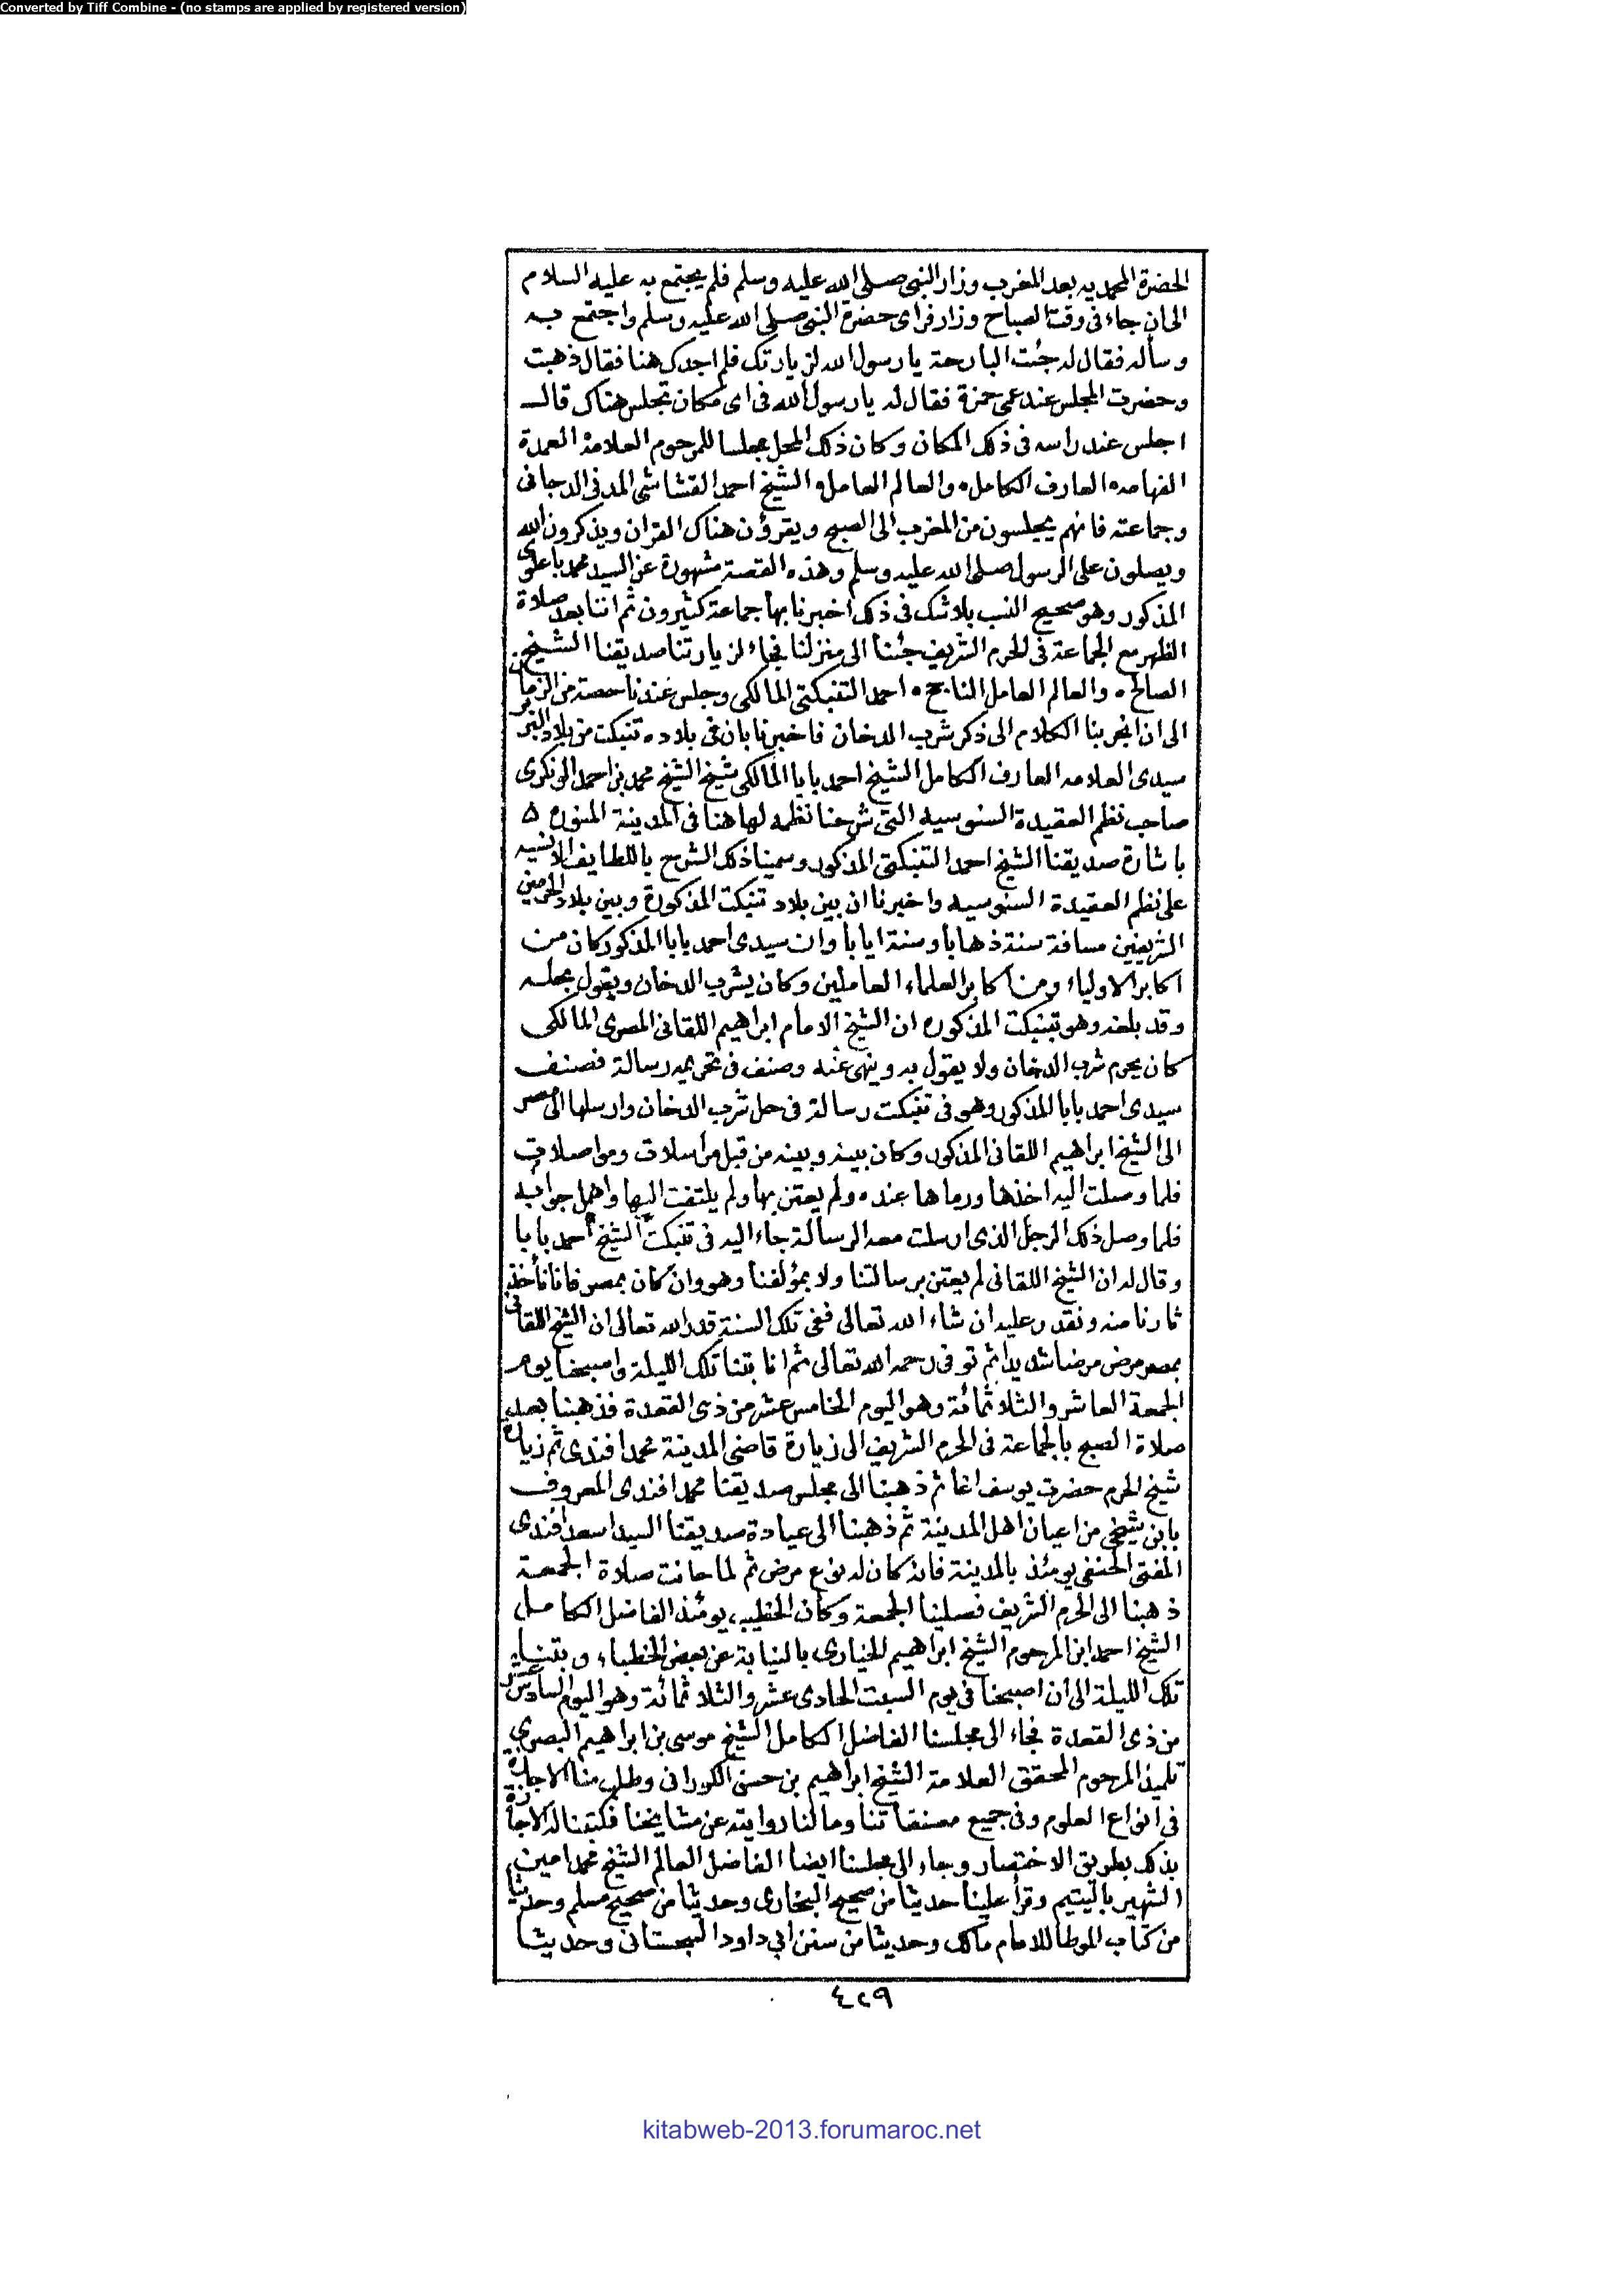 Converted by Tiff Combine - (no stamps are applied by registered version)
الحضرة المحمديه بعد المغرب وزار النبي صلى الله عليه وسلم فلم يجتمع به عليه السلام
الى ان جاء فى وقت الصباح وزار فراى حضرة النبي صلى الله عليه وسلم واجتمع به
وساله فقال له جئت البارحة يا رسول الله لزيارتك فلم اجدك هنا فقال ذهبت
وحضرت المجلس عند عمي حمزة فقال له يا رسول الله فى اى مكان تجلس هناك قال
اجلس عند راسه فى ذلك المكان وكان ذلك المحل مجلسا للمرحوم العلامة العمدة
الفهامه العارف الكامل والعالم العامل الشيخ احمد القشاشى المدنى الدجانى
وجماعته فانهم يجلسون من المغرب الى الصبح ويقرؤن هناك القران ويذكرون الله
ويصلون على الرسول صلى الله عليه وسلم وهذه القصة مشهورة عن السيد محمد باعلوى
المذكور وهو صحيح النسب بلا شك فى ذلك اخبرنا بها جماعة كثيرون ثم اننا بعد صلاة
الظهر مع الجماعة فى الحرم الشريف جئنا الى منزلنا فجاء لزيارتنا صديقنا الشيخ
الصالح والعالم العامل الناجح احمد التنبكتى المالكى وجلس عندنا حصة من الزمان
الى ان انجر بنا الكلام الى ذكر شرب الدخان فاخبرنا بان فى بلاده تنبكت من بلاد التبر
سيدى العلامه العارف الكامل الشيخ احمد بابا المالكى شيخ الشيخ محمد بن احمد الونكرى
صاحب نظم العقيدة السنوسيه التى شرحنا نظمه لها هنا فى المدينة المنوره
باشارة صديقنا الشيخ احمد التنبكتى المذكور وسمينا ذلك الشرح باللطايف الانسيه
على نظم العقيدة السنوسيه واخبرنا ان بين بلاد تنبكت المذكورة وبين بلاد الحرمين
الشريفين مسافة سنة ذهابا وسنة ايابا وان سيدى احمد بابا المذكور كان من
اكابر الاولياء ومن اكابر العلماء العاملين وكان يشرب الدخان ويقول بحله
وقد بلغه وهو بتنبكت المذكوره ان الشيخ الامام ابراهيم اللقانى المصرى المالكى
كان يحرم شرب الدخان ولا يقول به وينهى عنه وصنف فى تحريمه رسالة فصنف
سيدى احمد بابا المذكور وهو فى تنبكت رسالة فى حل شرب الدخان وارسلها الى مصر
الى الشيخ ابراهيم اللقانى المذكور وكان بينه وبينه من قبل مراسلات ومواصلات
فلما وصلت اليه اخذها ورماها عنده ولم يعتن بها ولم يلتفت اليها واهمل جوابه
فلما وصل ذلك الرجل الذى ارسلت معه الرسالة جاء اليه فى تنبكت الشيخ احمد بابا
وقال له ان الشيخ اللقانى لم يعتن برسالتنا ولا بمؤلفنا وهو وان كان بمصر فاننا نأخذ
ثارنا منه ونقدر عليه ان شاء الله تعالى ففى تلك السنة قدر الله تعالى ان الشيخ اللقانى
بمصر مرض مرضا شديدا ثم توفى رحمه الله تعالى ثم انا بتنا تلك الليلة واصبحنا يوم
الجمعة العاشر والثلاثمائة وهو اليوم الخامس عشر من ذى القعدة فذهبنا بعد
صلاة الصبح بالجماعة فى الحرم الشريف الى زيارة قاضى المدينة محمد افندى ثم زيارة
شيخ الحرم حضرت يوسف اغا ثم ذهبنا الى مجلس صديقنا محمد افندى المعروف
بابن شيخى من اعيان اهل المدينة ثم ذهبنا الى عيادة صديقنا السيد اسعد افندى
المفتى الحنفى يومئذ بالمدينة فانه كان له نوع مرض ثم لما حانت صلاة الجمعة
ذهبنا الى الحرم الشريف فصلينا الجمعة وكان الخطيب يومئذ الفاضل الكامل
الشيخ احمد ابن المرحوم الشيخ ابراهيم الخيارى بالنيابة عن بعض الخطباء وبتنا
تلك الليلة الى ان اصبحنا فى يوم السبت الحادى عشر والثلاثمائة وهو اليوم السادس عشر
من ذى القعدة فجاء الى مجلسنا الفاضل الكامل الشيخ موسى بن ابراهيم البصرى
تلميذ المرحوم المحقق العلامة الشيخ ابراهيم بن حسن الكورانى وطلب منا الاجازة
فى انواع العلوم وفى جميع مصنفاتنا وما لنا روايته عن مشايخنا فكتبنا له الاجازة
بذلك بطريق الاختصار وجاء الى مجلسنا ايضا الفاضل العالم الشيخ محمد امين
الشهير باليتيم وقرأ علينا حديثا من صحيح البخارى وحديثا من صحيح مسلم وحديثا
من كتاب الموطا للامام مالك وحديثا من سنن ابي داود السجستانى وحديثا
٤٢٩
kitabweb-2013.forumaroc.net